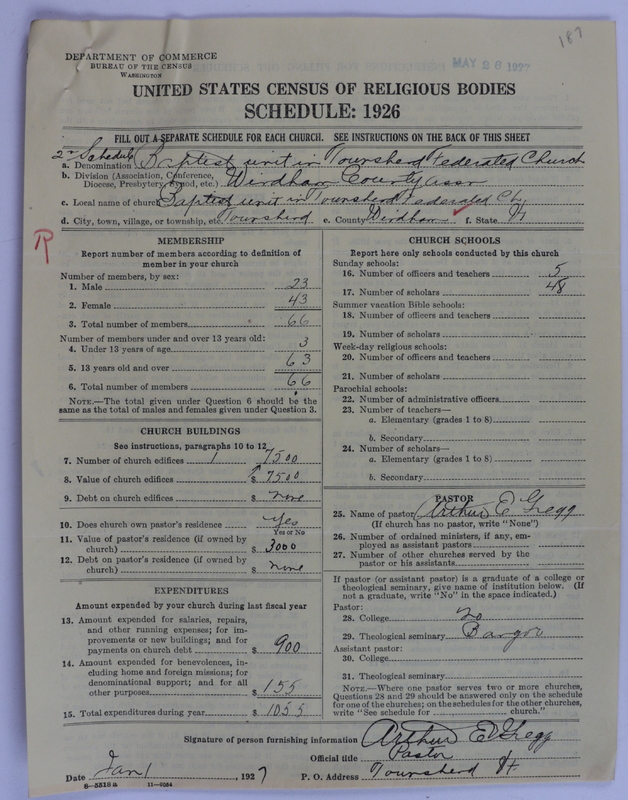 187
DEPARTMENT OF COMMERCE
BUREAU OF THE CENSUS
WASHINGTON
MAY 26 1927
UNITED STATES CENSUS OF RELIGIOUS BODIES
SCHEDULE: 1926
FILL OUT A SEPARATE SCHEDULE FOR EACH CHURCH. SEE INSTRUCTIONS ON THE BACK OF THIS SHEET
2nd Schedule
a. Denomination Baptist unit in Townshend Federated Church
b. Division (Association, Conference, Diocese, Presbytery, Synod, etc.) Windham County assn
c. Local name of church Baptist unit in Townshend Federated Ch
d. City, town, village, or township, etc. Townshend e. County Windham f. State Vt
R
MEMBERSHIP
Report number of members according to definition of
member in your church
Number of members, by sex:
1. Male 23
2. Female 43
3. Total number of members 66
Number of members under and over 13 years old:
4. Under 13 years of age 3
5. 13 years old and over 63
6. Total number of members 66
NOTE.—The total given under Question 6 should be the
same as the total of males and females given under Question 3.
CHURCH BUILDINGS
See instructions, paragraphs 10 to 12
7. Number of church edifices 1 7500
8. Value of church edifices $ 7500
9. Debt on church edifices $ none
10. Does church own pastor's residence yes
Yes or No
11. Value of pastor's residence (if owned by
church) $ 3000
12. Debt on pastor's residence (if owned by
church) $ none
EXPENDITURES
Amount expended by your church during last fiscal year
13. Amount expended for salaries, repairs,
and other running expenses; for im-
provements or new buildings; and for
payments on church debt $ 900
14. Amount expended for benevolences, in-
cluding home and foreign missions; for
denominational support; and for all
other purposes $ 155
15. Total expenditures during year $ 1055
CHURCH SCHOOLS
Report here only schools conducted by this church
Sunday schools:
16. Number of officers and teachers 5
17. Number of scholars 48
Summer vacation Bible schools:
18. Number of officers and teachers
19. Number of scholars
Week-day religious schools:
20. Number of officers and teachers
21. Number of scholars
Parochial schools:
22. Number of administrative officers
23. Number of teachers—
a. Elementary (grades 1 to 8)
b. Secondary
24. Number of scholars—
a. Elementary (grades 1 to 8)
b. Secondary
PASTOR
25. Name of pastor Arthur E Gregg
(If church has no pastor, write "None")
26. Number of ordained ministers, if any, em-
ployed as assistant pastors
27. Number of other churches served by the
pastor or his assistants
If pastor (or assistant pastor) is a graduate of a college or
theological seminary, give name of institution below. (If
not a graduate, write "No" in the space indicated.)
Pastor:
28. College no
29. Theological seminary Bangor
Assistant pastor:
30. College
31. Theological seminary
NOTE.—Where one pastor serves two or more churches,
Questions 28 and 29 should be answered only on the schedule
for one of the churches; on the schedules for the other churches,
write "See schedule for church."
Signature of person furnishing information Arthur E Gregg
Official title Pastor
Date Jan 1, 1927 P. O. Address Townshend Vt.
8-5518a 11-9084